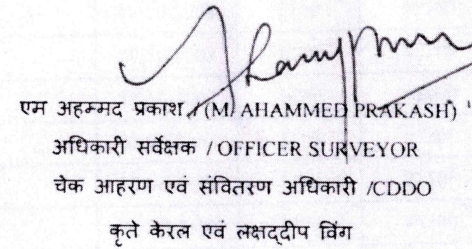 एम अहम्मद प्रकाश / (M AHAMMED PRAKASH)
अधिकारी सर्वेक्षक / OFFICER SURVEYOR
चेक आहरण एवं संवितरण अधिकारी /CDDO
कृते केरल एवं लक्षद्दीप विंग